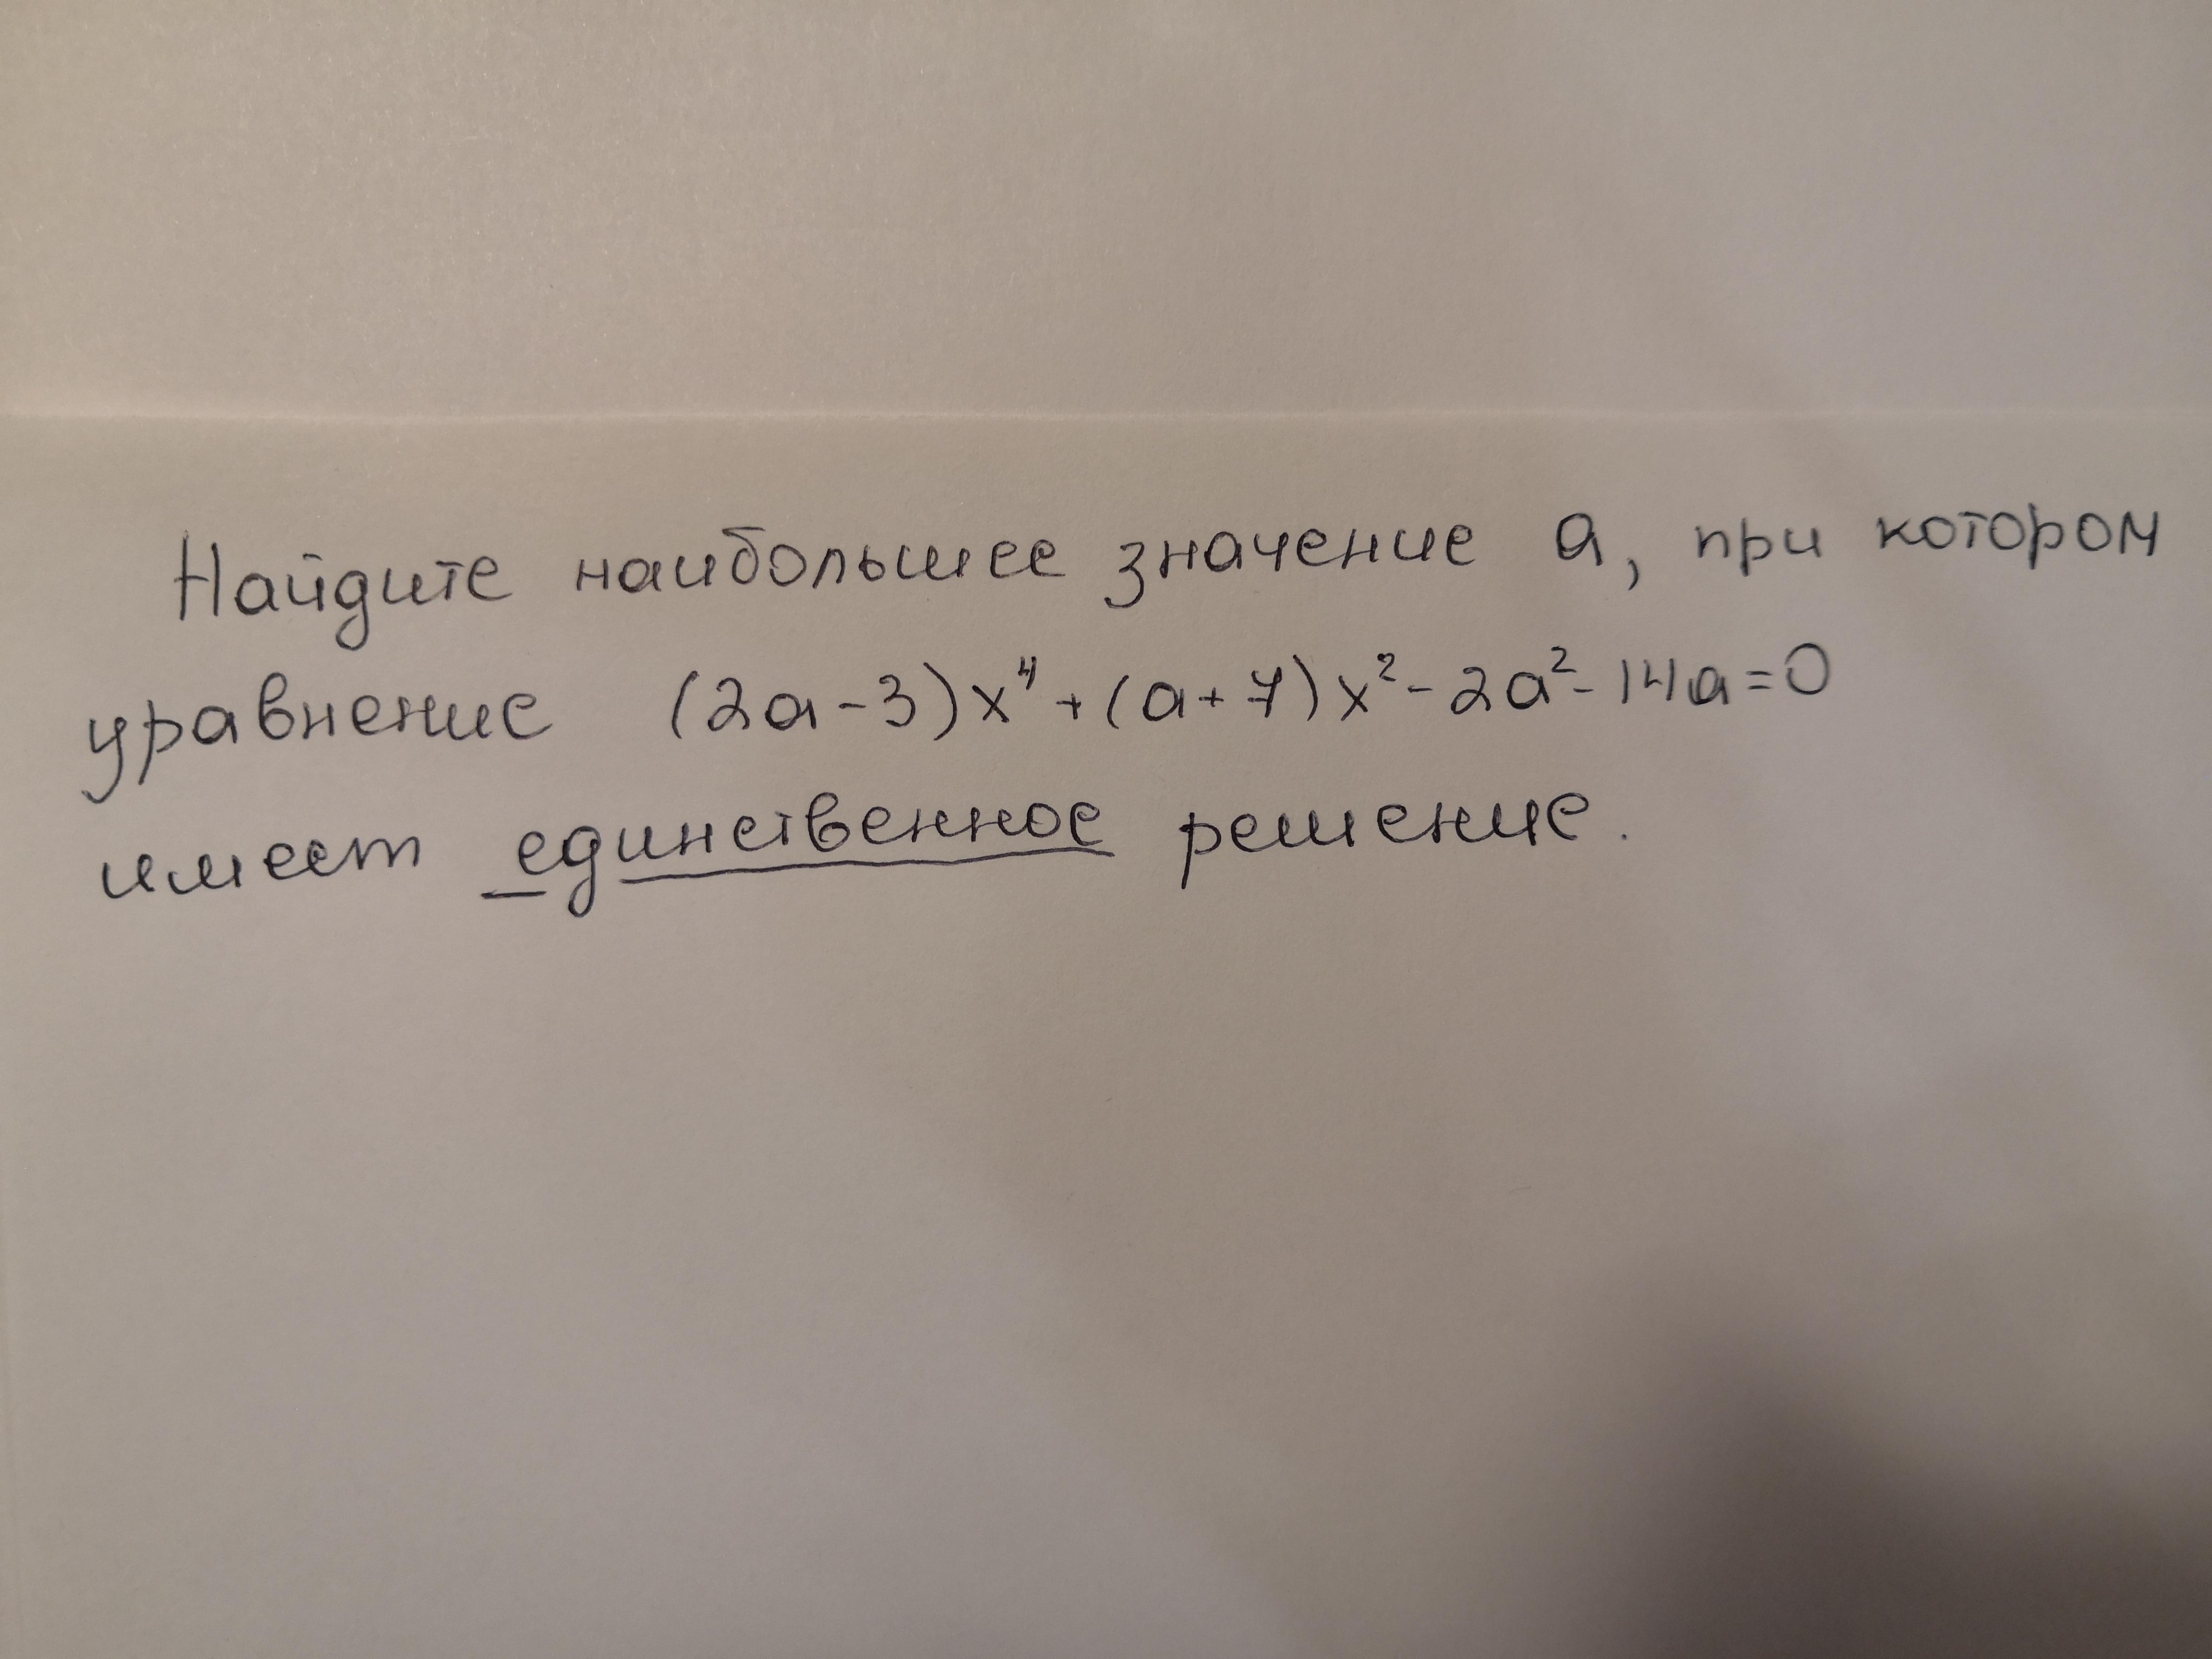 Найдите наибольшее значение a, при котором
уравнение (2a-3)x⁴+(a+7)x²-2a²-14a=0
имеет единственное решение.